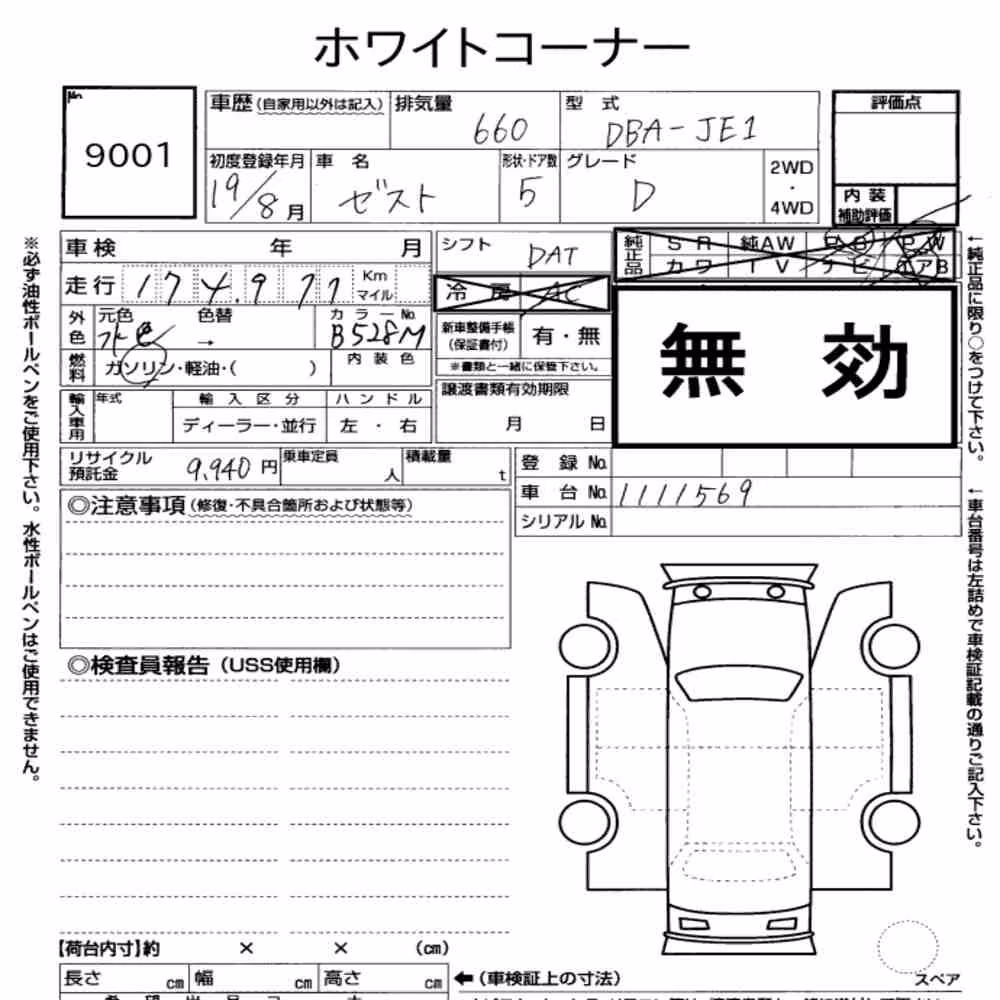 ホワイトコーナー
9001
車歴(自家用以外は記入) 排気量 660 型 式 DBA-JE1
初度登録年月 19/8月 車 名 ゼスト 形状・ドア数 5 グレード D 2WD・4WD
評価点
内装
補助評価
車検 年 月
シフト DAT
純正品 SR 純AW PW
カワ TV ナビ エアB
走行 174,977 Km マイル
冷房 AC
外色 元色 水色 色替 → カラーNo. B528M
新車整備手帳(保証書付) 有・無
※書類と一緒に保管下さい。
無 効
燃料 ガソリン・軽油・( ) 内装色
輸入車用 年式 輸入区分 ハンドル
ディーラー・並行 左・右
譲渡書類有効期限
月 日
リサイクル預託金 9,940円 乗車定員 人 積載量 t
登録No.
車台No. 1111569
シリアルNo.
◎注意事項(修復・不具合箇所および状態等)
◎検査員報告(USS使用欄)
※必ず油性ボールペンをご使用下さい。水性ボールペンはご使用できません。
←純正品に限り○をつけて下さい。
←車台番号は左詰めで車検証記載の通りご記入下さい。
【荷台内寸】約 × × (cm)
長さ cm 幅 cm 高さ cm ←(車検証上の寸法)
スペア